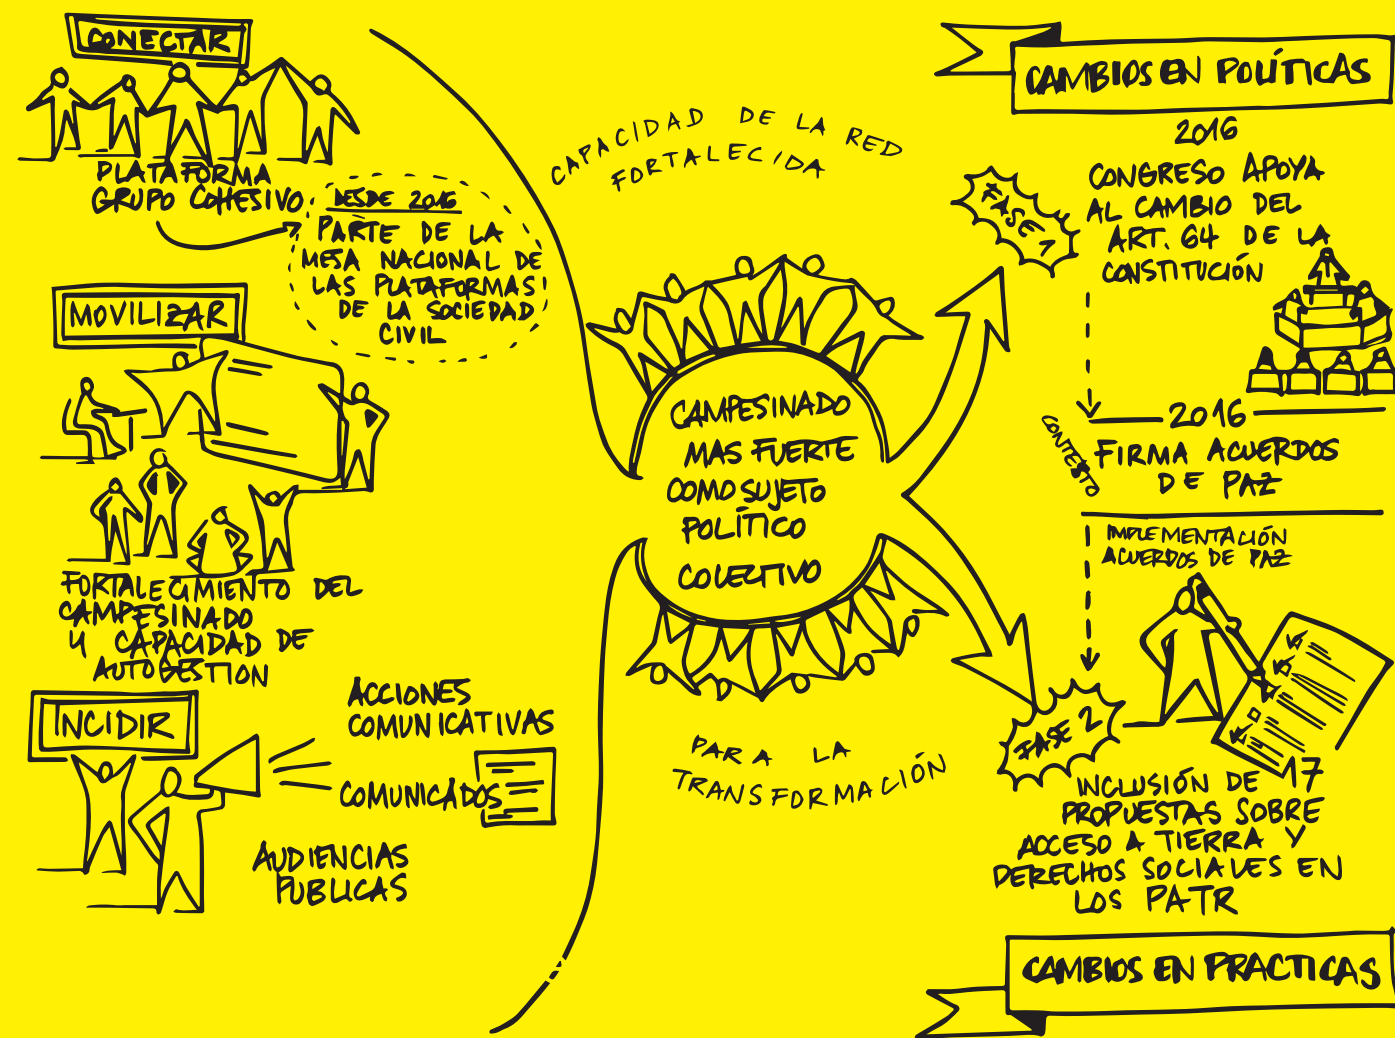 CONECTAR
PLATAFORMA
GRUPO COHESIVO
DESDE 2016
PARTE DE LA
MESA NACIONAL DE
LAS PLATAFORMAS
DE LA SOCIEDAD
CIVIL
MOVILIZAR
FORTALECIMIENTO DEL
CAMPESINADO
Y CAPACIDAD DE
AUTOGESTION
INCIDIR
ACCIONES
COMUNICATIVAS
COMUNICADOS
AUDIENCIAS
PUBLICAS
CAPACIDAD DE LA RED
FORTALECIDA
CAMPESINADO
MAS FUERTE
COMO SUJETO
POLÍTICO
COLECTIVO
PARA LA
TRANSFORMACIÓN
CAMBIOS EN POLÍTICAS
FASE 1
2016
CONGRESO APOYA
AL CAMBIO DEL
ART. 64 DE LA
CONSTITUCIÓN
CONTESTO
2016
FIRMA ACUERDOS
DE PAZ
IMPLEMENTACIÓN
ACUERDOS DE PAZ
FASE 2
INCLUSIÓN DE 17
PROPUESTAS SOBRE
ACCESO A TIERRA Y
DERECHOS SOCIALES EN
LOS PATR
CAMBIOS EN PRACTICAS